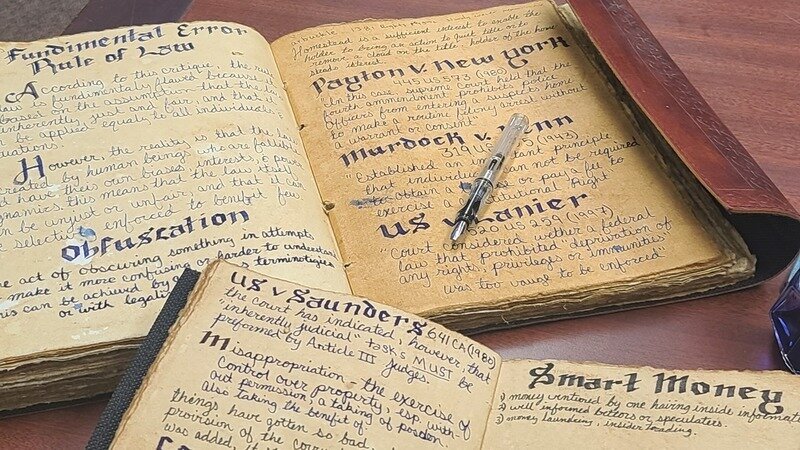 Fundimental Error
Rule of Law
According to this critique, the rule
law is fundamentally flawed because
based on the assumption that the
inherently just and fair, and that it
be applied equally to all individuals
uations.
However, the reality is that the
created by human beings who are fallible
have their own biases interest, &
dynamics this means that the law itself
can be unjust or unfair, and that it can
selectively enforced to benefit few
Obfuscation
act of obscuring something in attempts
make it more confusing or harder to understand
can be achieved by terminologies
or with legal
Homestead is a sufficient interest to enable the
holder to bring an action to quiet title or to
remove a cloud on the title, holder of the home
steads interest.
Payton v. New York
445 US 573 (1980)
"In this case, supreme Court held that the
fourth amendment prohibits Police
Officers from entering a suspects home
to make a routine felony arrest without
a warrant or consent
Murdock v. Penn
319 US (1943)
"Established an important principle
that individuals can not be required
to obtain a or pay a fee to
exercise a Right
US v Lanier
520 US 259 (1997)
"Court considered wether a federal
law that prohibited "deprivation of
any rights, privileges or immunities"
was too vague to be enforced"
US v Saunders 641 CA (1980)
the court has indicated, however, that
"inherently judicial" tasks MUST be
preformed by Article III judges.
Misappropriation - the exercise of
Control over property, esp with-
out permission a taking of
also taking the benefit of.
things have gotten so bad,
provision of the
was added,
Smart Money
1) money wentured by one having inside information
2) well informed bettors or speculaters.
3) money laundering, insider trading.